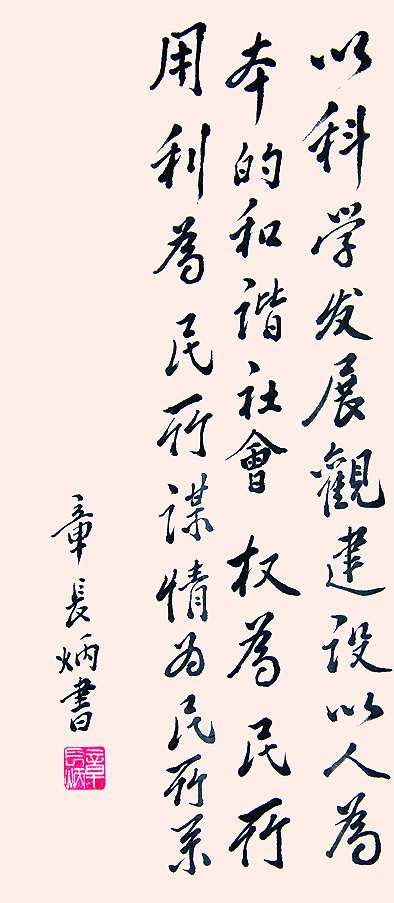 以科学发展觀建设以人為
本的和谐社會 权為民所
用利為民所谋情为民所系
章長炳書
章長炳